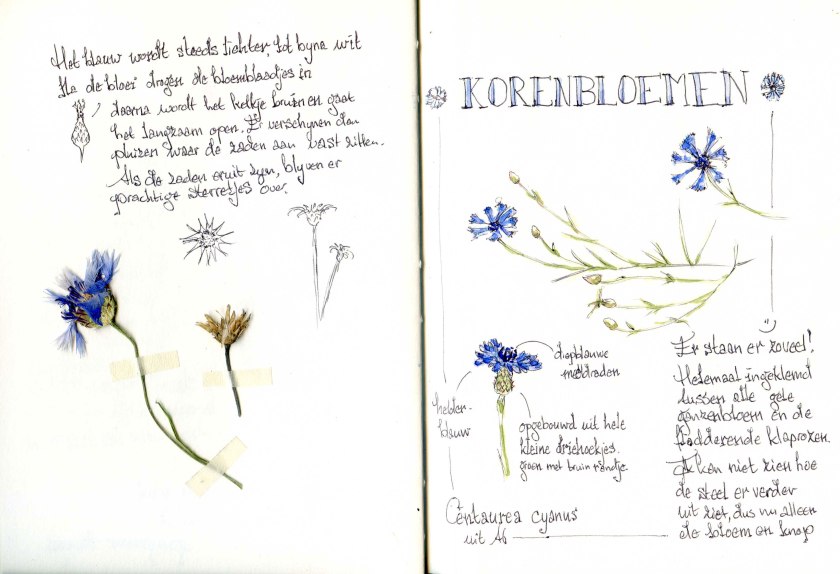 Het blauw wordt steeds lichter, tot byna wit
Na de bloei drogen de bloemblaadjes in
daarna wordt het kelkje bruin en gaat
het langzaam open. Er verschynen dan
pluizen waar de zaden aan vast zitten.
Als de zaden eruit zyn, blyven er
prachtige sterretjes over.
KORENBLOEMEN
diepblauwe
meeldraden
helder-
blauw
opgebouwd uit hele
kleine driehoekjes.
groen met bruin randje.
Centaurea cyanus
uit
Er staan er zoveel!
Helemaal ingeklemd
tussen alle gele
ganzenbloem en de
fladderende klaprozen.
Ik kan niet zien hoe
de steel er verder
uit ziet, dus nu alleen
de bloem en knop